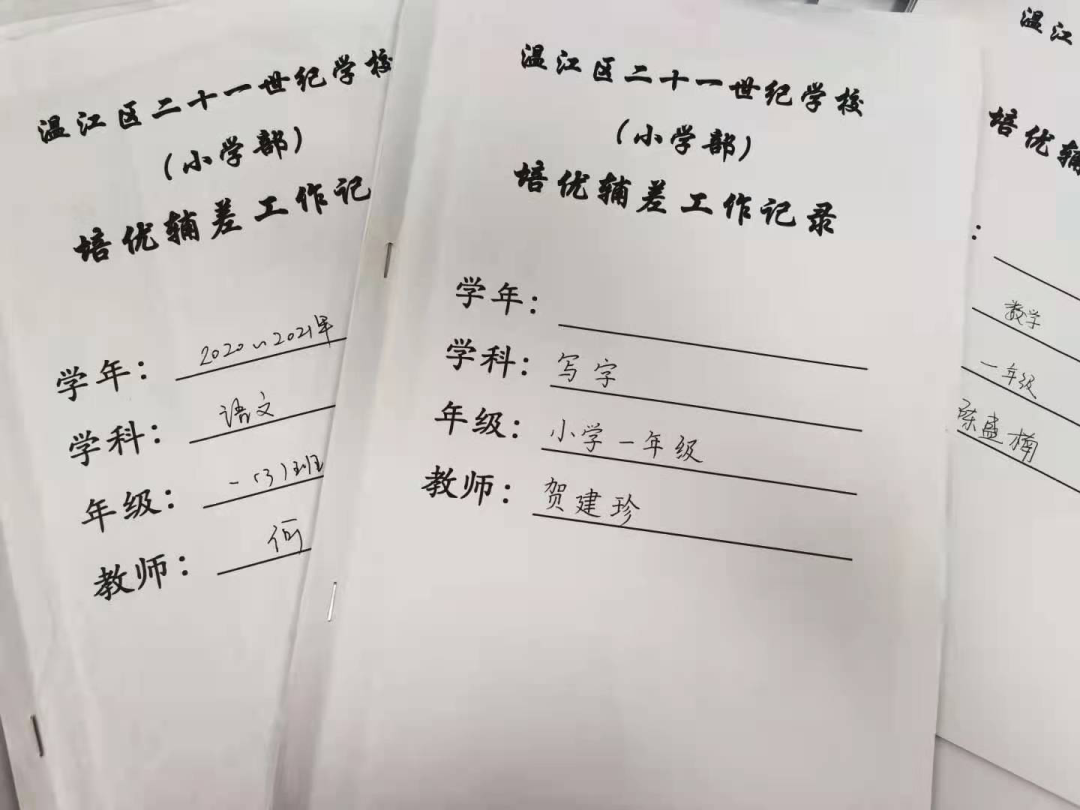 温江区二十一世纪学校
(小学部)
培优辅差工作记
学年: 2020~2021年
学科: 语文
年级: 一(3)班
教师: 何
温江区二十一世纪学校
(小学部)
培优辅差工作记录
学年:
学科: 写字
年级: 小学一年级
教师: 贺建珍
温江
培优辅
:
数学
一年级
陈盛楠